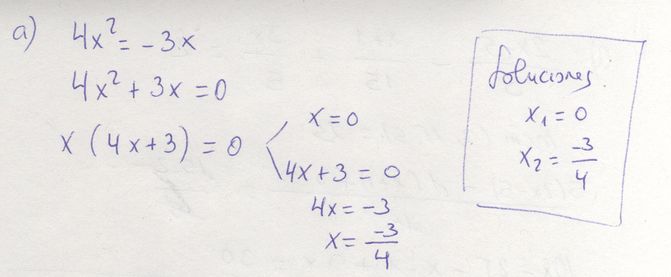 a) 4x² = -3x
4x² + 3x = 0
x (4x+3) = 0
x = 0
4x+3 = 0
4x = -3
x = -3/4
Soluciones
x₁ = 0
x₂ = -3/4